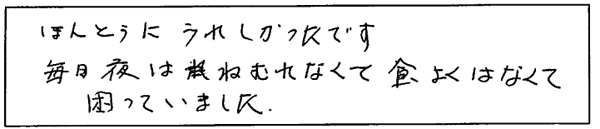 ほんとうに うれしかったです
毎日夜は ねむれなくて 食よくはなくて
困っていました.